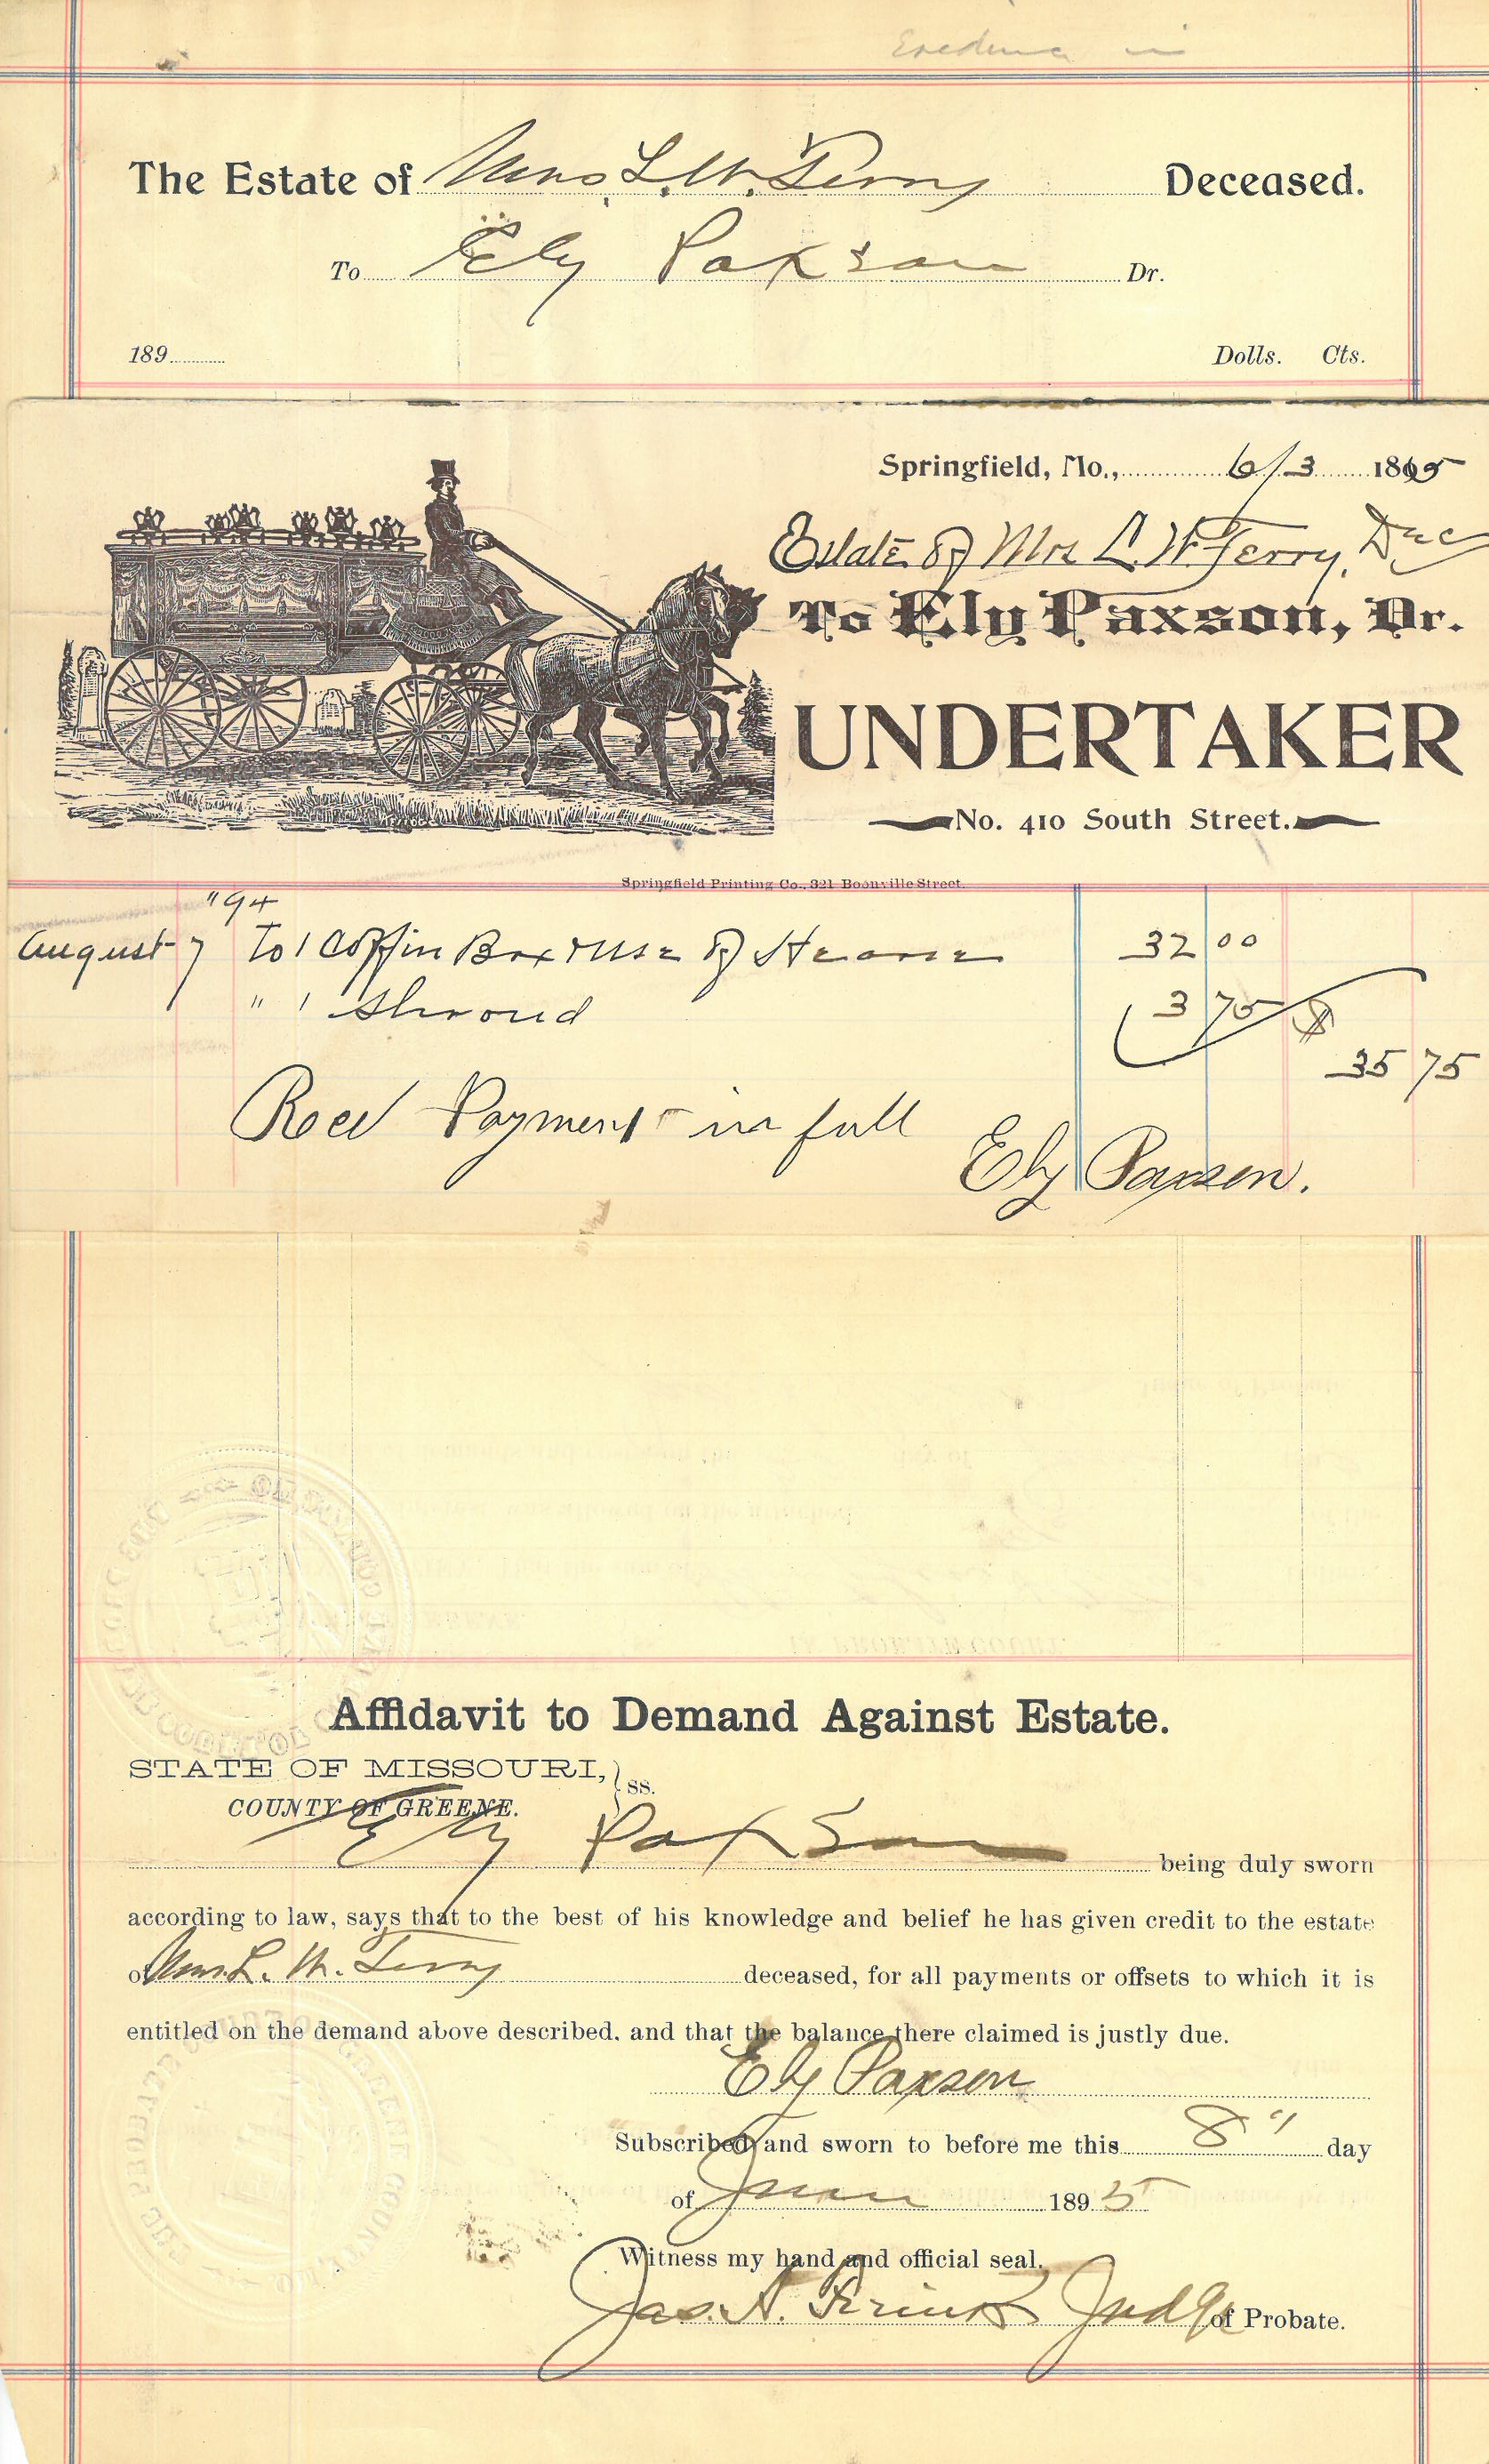 The Estate of Mrs. L. W. Terry Deceased.
To Ely Paxson Dr.
189 Dolls. Cts.
Springfield, Mo., 6/3 1895
Estate of Mrs L. W. Terry, Dec
To Ely Paxson, Dr.
UNDERTAKER
No. 410 South Street.
Springfield Printing Co., 321 Boonville Street.
"94
August 7 To 1 Coffin Box & use of Hearse 32 00
" 1 Shroud 3 75 $
35 75
Recd Payment in full
Ely Paxson.
Affidavit to Demand Against Estate.
STATE OF MISSOURI, } ss.
COUNTY OF GREENE.
Ely Paxson being duly sworn
according to law, says that to the best of his knowledge and belief he has given credit to the estate
of Mrs. L. W. Terry deceased, for all payments or offsets to which it is
entitled on the demand above described, and that the balance there claimed is justly due.
Ely Paxson
Subscribed and sworn to before me this 8" day
of June 1895
Witness my hand and official seal.
Jas. A. Judge of Probate.